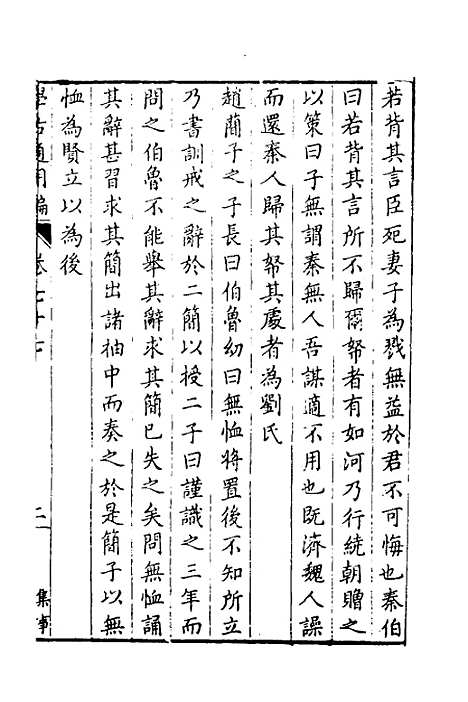 若背其言臣死妻子為戮無益於君不可悔也秦伯
曰若背其言所不歸爾帑者有如河乃行繞朝贈之
以策曰子無謂秦無人吾謀適不用也既濟魏人譟
而還秦人歸其帑其處者為劉氏
趙蕳子之子長曰伯魯幼曰無恤將置後不知所立
乃書訓戒之辭於二簡以授二子曰謹識之三年而
問之伯魯不能舉其辭求其簡已失之矣問無恤誦
其辭甚習求其簡出諸袖中而奏之於是簡子以無
恤為賢立以為後
學古適用編 卷七十七 二 集事